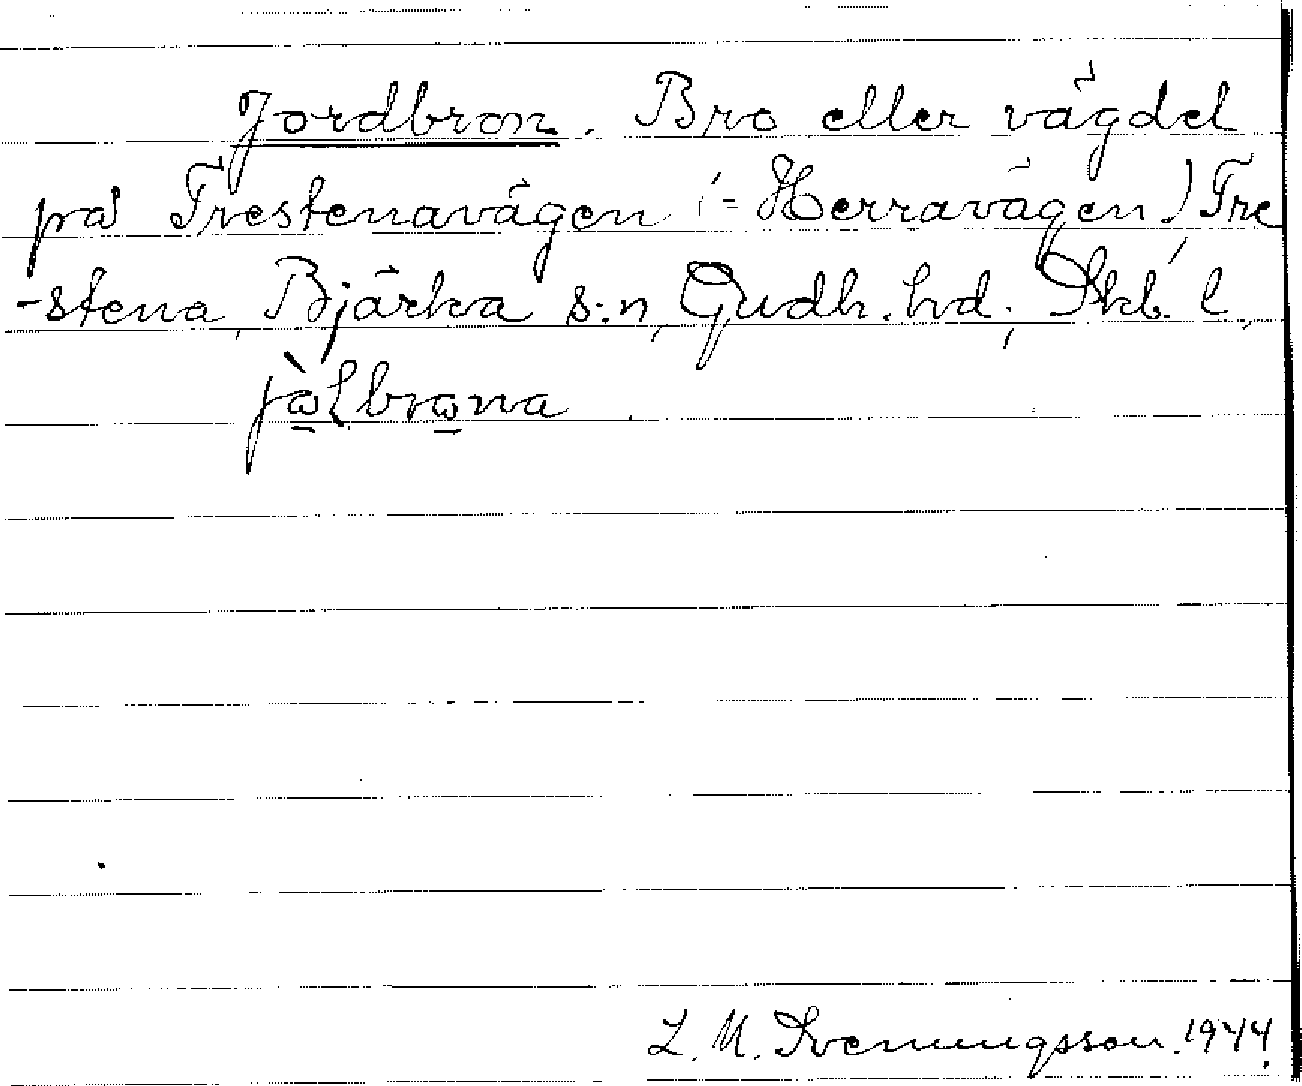 Jordbron. Bro eller vägdel
på Trestenavägen (=Herravägen) Tre
-stena, Bjärka s:n, Gudh. hd; Skb. l,
jòlbrona.
L. M. Svenungsson. 1944.